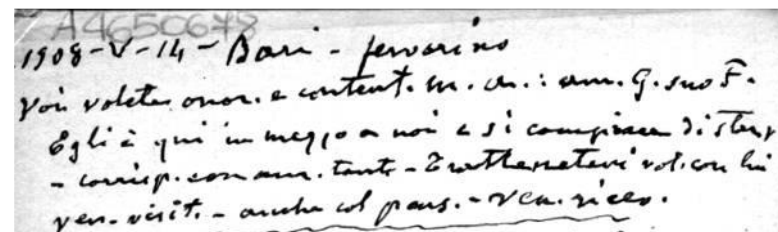 A4650678
1908-V-14 - Bari - fervorino
Voi volete onor. e content. m. a.: am. G. suo F.
Egli è qui in mezzo a noi e si compiace di star
- corrisp. con am. tant. - Trattenetevi vol. con lui
ven. visit. - anche col pens. - ven. ricev.